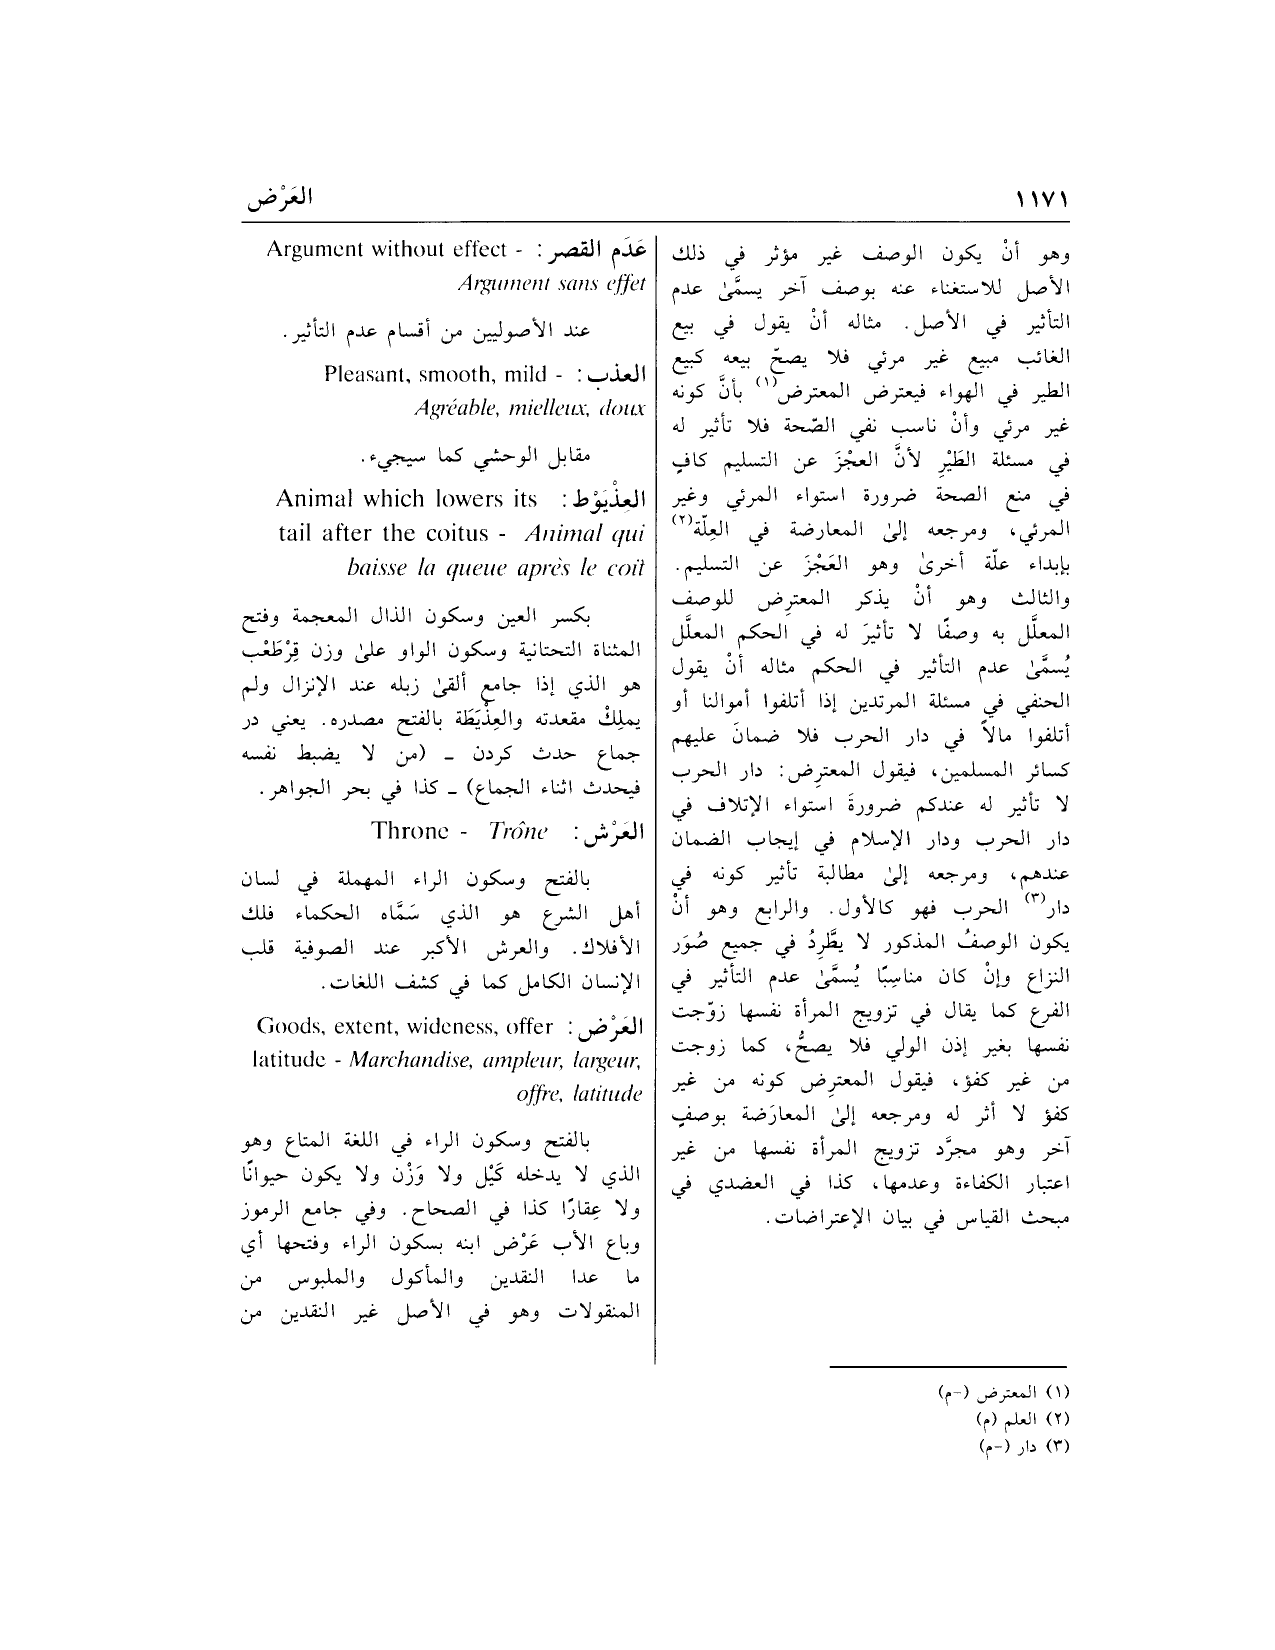 ١١٧١
العَرْض
وهو أنْ يكون الوصف غير مؤثر في ذلك
الأصل للاستغناء عنه بوصف آخر يسمَّىٰ عدم
التأثير في الأصل. مثاله أنْ يقول في بيع
الغائب مبيع غير مرئي فلا يصحّ بيعه كبيع
الطير في الهواء فيعترض المعترض(١) بأنَّ كونه
غير مرئي وأنْ ناسب نفي الصّحة فلا تأثير له
في مسئلة الطَيْرِ لأنَّ العجْزَ عن التسليم كافٍ
في منع الصحة ضرورة استواء المرئي وغير
المرئي، ومرجعه إلىٰ المعارضة في العِلّة(٢)
بإبداء علّة أخرىٰ وهو العَجْزَ عن التسليم.
والثالث وهو أنْ يذكر المعترِض للوصف
المعلَّل به وصفًا لا تأثيرَ له في الحكم المعلَّل
يُسمَّىٰ عدم التأثير في الحكم مثاله أنْ يقول
الحنفي في مسئلة المرتدين إذا أتلفوا أموالنا أو
أتلفوا مالاً في دار الحرب فلا ضمانَ عليهم
كسائر المسلمين، فيقول المعترِض: دار الحرب
لا تأثير له عندكم ضرورةَ استواء الإتلاف في
دار الحرب ودار الإسلام في إيجاب الضمان
عندهم، ومرجعه إلىٰ مطالبة تأثير كونه في
دار(٣) الحرب فهو كالأول. والرابع وهو أنْ
يكون الوصفُ المذكور لا يطَّرِدُ في جميع صُوَر
النزاع وإنْ كان مناسِبًا يُسمَّىٰ عدم التأثير في
الفرع كما يقال في تزويج المرأة نفسها زوّجت
نفسها بغير إذن الولي فلا يصحُّ، كما زوجت
من غير كفؤ، فيقول المعترِض كونه من غير
كفؤ لا أثر له ومرجعه إلىٰ المعارَضة بوصفٍ
آخر وهو مجرَّد تزويج المرأة نفسها من غير
اعتبار الكفاءة وعدمها، كذا في العضدي في
مبحث القياس في بيان الإعتراضات.
عَدَم القصر: Argument without effect -
Argument sans effet
عند الأصوليين من أقسام عدم التأثير.
العذب: Pleasant, smooth, mild -
Agréable, mielleux, doux
مقابل الوحشي كما سيجيء.
العِذْيَوْط: Animal which lowers its
tail after the coitus - Animal qui
baisse la queue après le coït
بكسر العين وسكون الذال المعجمة وفتح
المثناة التحتانية وسكون الواو علىٰ وزن قِرْطَعْب
هو الذي إذا جامع ألقىٰ زبله عند الإنزال ولم
يملِكْ مقعدته والعِذْيَطَة بالفتح مصدره. يعني در
جماع حدث كردن ـ (من لا يضبط نفسه
فيحدث اثناء الجماع) ـ كذا في بحر الجواهر.
العَرْش: Throne - Trône
بالفتح وسكون الراء المهملة في لسان
أهل الشرع هو الذي سَمَّاه الحكماء فلك
الأفلاك. والعرش الأكبر عند الصوفية قلب
الإنسان الكامل كما في كشف اللغات.
العَرْض: Goods, extent, wideness, offer
latitude - Marchandise, ampleur, largeur,
offre, latitude
بالفتح وسكون الراء في اللغة المتاع وهو
الذي لا يدخله كَيْل ولا وَزْن ولا يكون حيوانًا
ولا عِقارًا كذا في الصحاح. وفي جامع الرموز
وباع الأب عَرْض ابنه بسكون الراء وفتحها أي
ما عدا النقدين والمأكول والملبوس من
المنقولات وهو في الأصل غير النقدين من
(١) المعترض (-م)
(٢) العلم (م)
(٣) دار (-م)